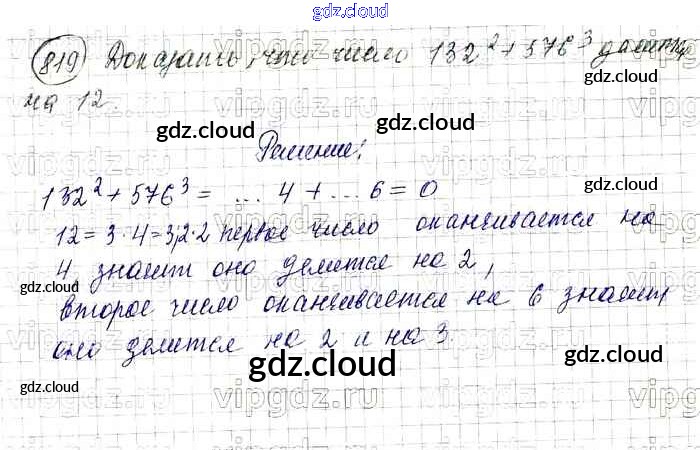 gdz.cloud
819 Доказать, что число 132² + 576³ делится
на 12.
gdz.cloud
gdz.cloud
gdz.cloud
gdz.cloud
Решение:
132² + 576³ = ... 4 + ... 6 = 0
12 = 3 · 4 = 3·2·2 первое число оканчивается на
4 значит оно делится на 2,
gdz.cloud
gdz.cloud
второе число оканчивается на 6 значит
оно делится на 2 и на 3.
gdz.cloud
gdz.cloud
gdz.cloud
gdz.cloud